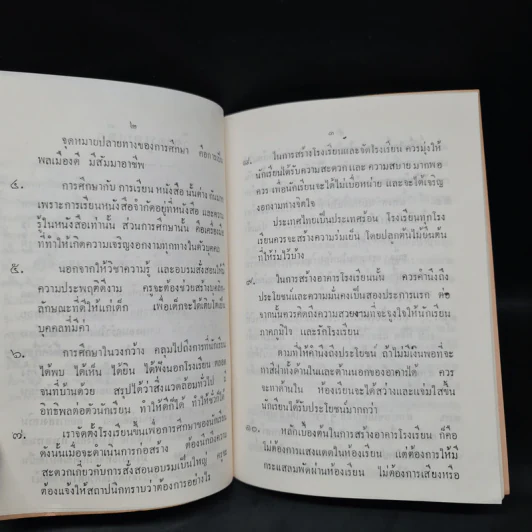 ๒
จุดหมายปลายทางของการศึกษา คือการเป็น
พลเมืองดี มีสัมมาอาชีพ
๔. การศึกษากับ การเรียน หนังสือ นั้นต่าง กันมาก
เพราะการเรียนหนังสือจำกัดอยู่ที่หนังสือ และความ
รู้ในหนังสือเท่านั้น ส่วนการศึกษานั้น คือเครื่องมือ
ที่ทำให้เกิดความเจริญงอกงามทุกทางในตัวบุคคล
๕. นอกจากให้วิชาความรู้ และอบรมสั่งสอนให้มี
ความประพฤติดีงาม ครูจะต้องช่วยสร้างบุคลิก
ลักษณะที่ดีให้แก่เด็ก เพื่อเด็กจะได้เติบโตเป็น
บุคคลที่มีค่า
๖. การศึกษาในวงกว้าง คลุมไปถึงการที่นักเรียน
ได้พบ ได้เห็น ได้ยิน ได้ฟังนอกโรงเรียน ตลอด
จนที่บ้านด้วย สรุปได้ว่าสิ่งแวดล้อมทั่วไป มี
อิทธิพลต่อตัวนักเรียน ทำให้ดีก็ได้ ทำให้ชั่วก็ได้
๗. เราจัดตั้งโรงเรียนขึ้นเพื่อการศึกษาของนักเรียน
ดังนั้นเมื่อจะดำเนินการก่อสร้าง ต้องนึกถึงความ
สะดวกเกี่ยวกับการสั่งสอนอบรมเป็นใหญ่ ครู
ต้องแจ้งให้สถาปนิกทราบว่าต้องการอย่างไร
๓
๘. ในการสร้างโรงเรียนและจัดโรงเรียน ควรมุ่งให้
นักเรียนได้รับความสะดวก และ ความสบาย มากพอ
ควร เพื่อนักเรียนจะได้ไม่เบื่อหน่าย และจะได้เจริญ
งอกงามทางจิตใจ
ประเทศไทยเป็นประเทศร้อน โรงเรียนทุกโรง
เรียนควรจะสร้างความร่มเย็น โดยปลูกต้นไม้ยืนต้น
ที่ให้ร่มไว้บ้าง
๙. ในการสร้างอาคารโรงเรียนนั้น ควรคำนึงถึง
ประโยชน์และความมั่นคงเป็นสองประการแรก ต่อ
จากนั้นควรคิดถึงความสวยงามที่จะจูงใจให้นักเรียน
ภาคภูมิใจ และรักโรงเรียน
ตามที่ให้คำนึงถึงประโยชน์ ถ้าไม่มีเงินพอที่จะ
ทาสีฝาทั้งด้านในและด้านนอกของอาคารได้ ควร
จะทาด้านใน ห้องเรียนจะได้สว่างและแจ่มใสขึ้น
นักเรียนได้รับประโยชน์มากกว่า
๑๐. หลักเบื้องต้นในการสร้างอาคารโรงเรียน ก็คือ
ไม่ต้องการแสงแดดในห้องเรียน แต่ต้องการให้มี
กระแสลมพัดผ่านห้องเรียน ไม่ต้องการเสียงหรือ